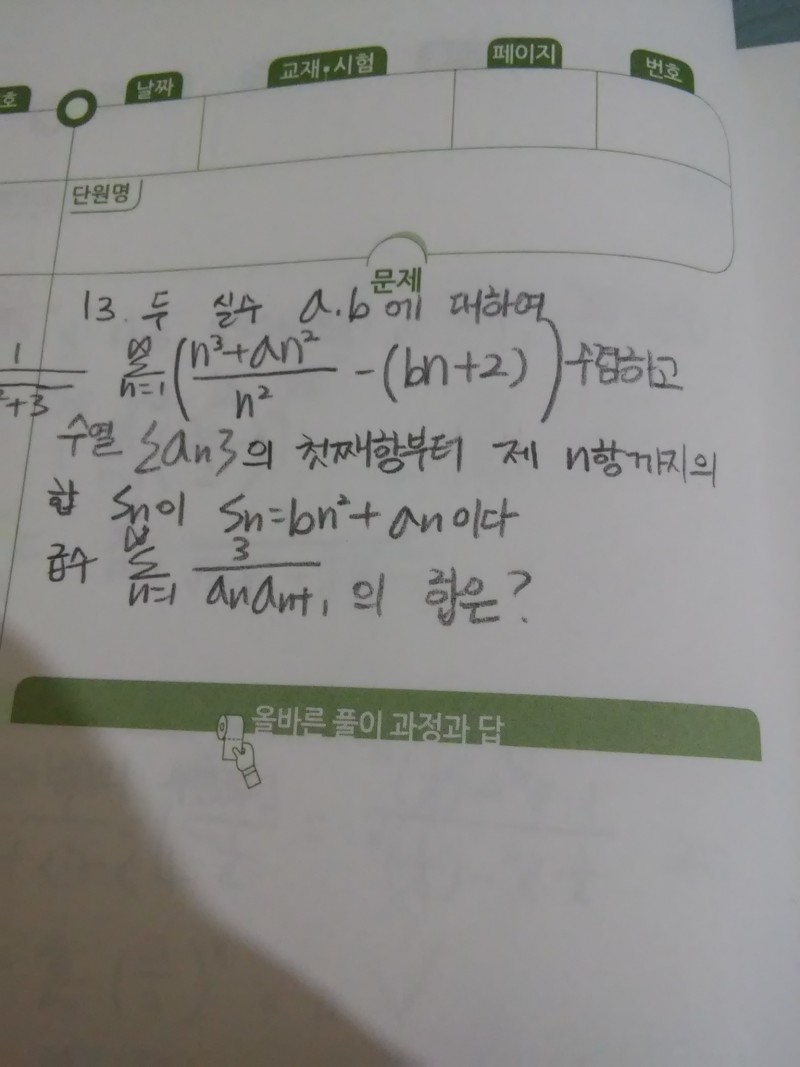 호
날짜
교재·시험
페이지
번호
단원명
문제
13. 두 실수 a.b에 대하여
∞ Σ n=1 (n³+an² / n² - (bn+2)) 수렴하고
1 / ²+3
수열 {an}의 첫째항부터 제 n항까지의
합 Sn이 Sn=bn²+an이다
급수 ∞ Σ n=1 3 / anan+1 의 합은?
올바른 풀이 과정과 답